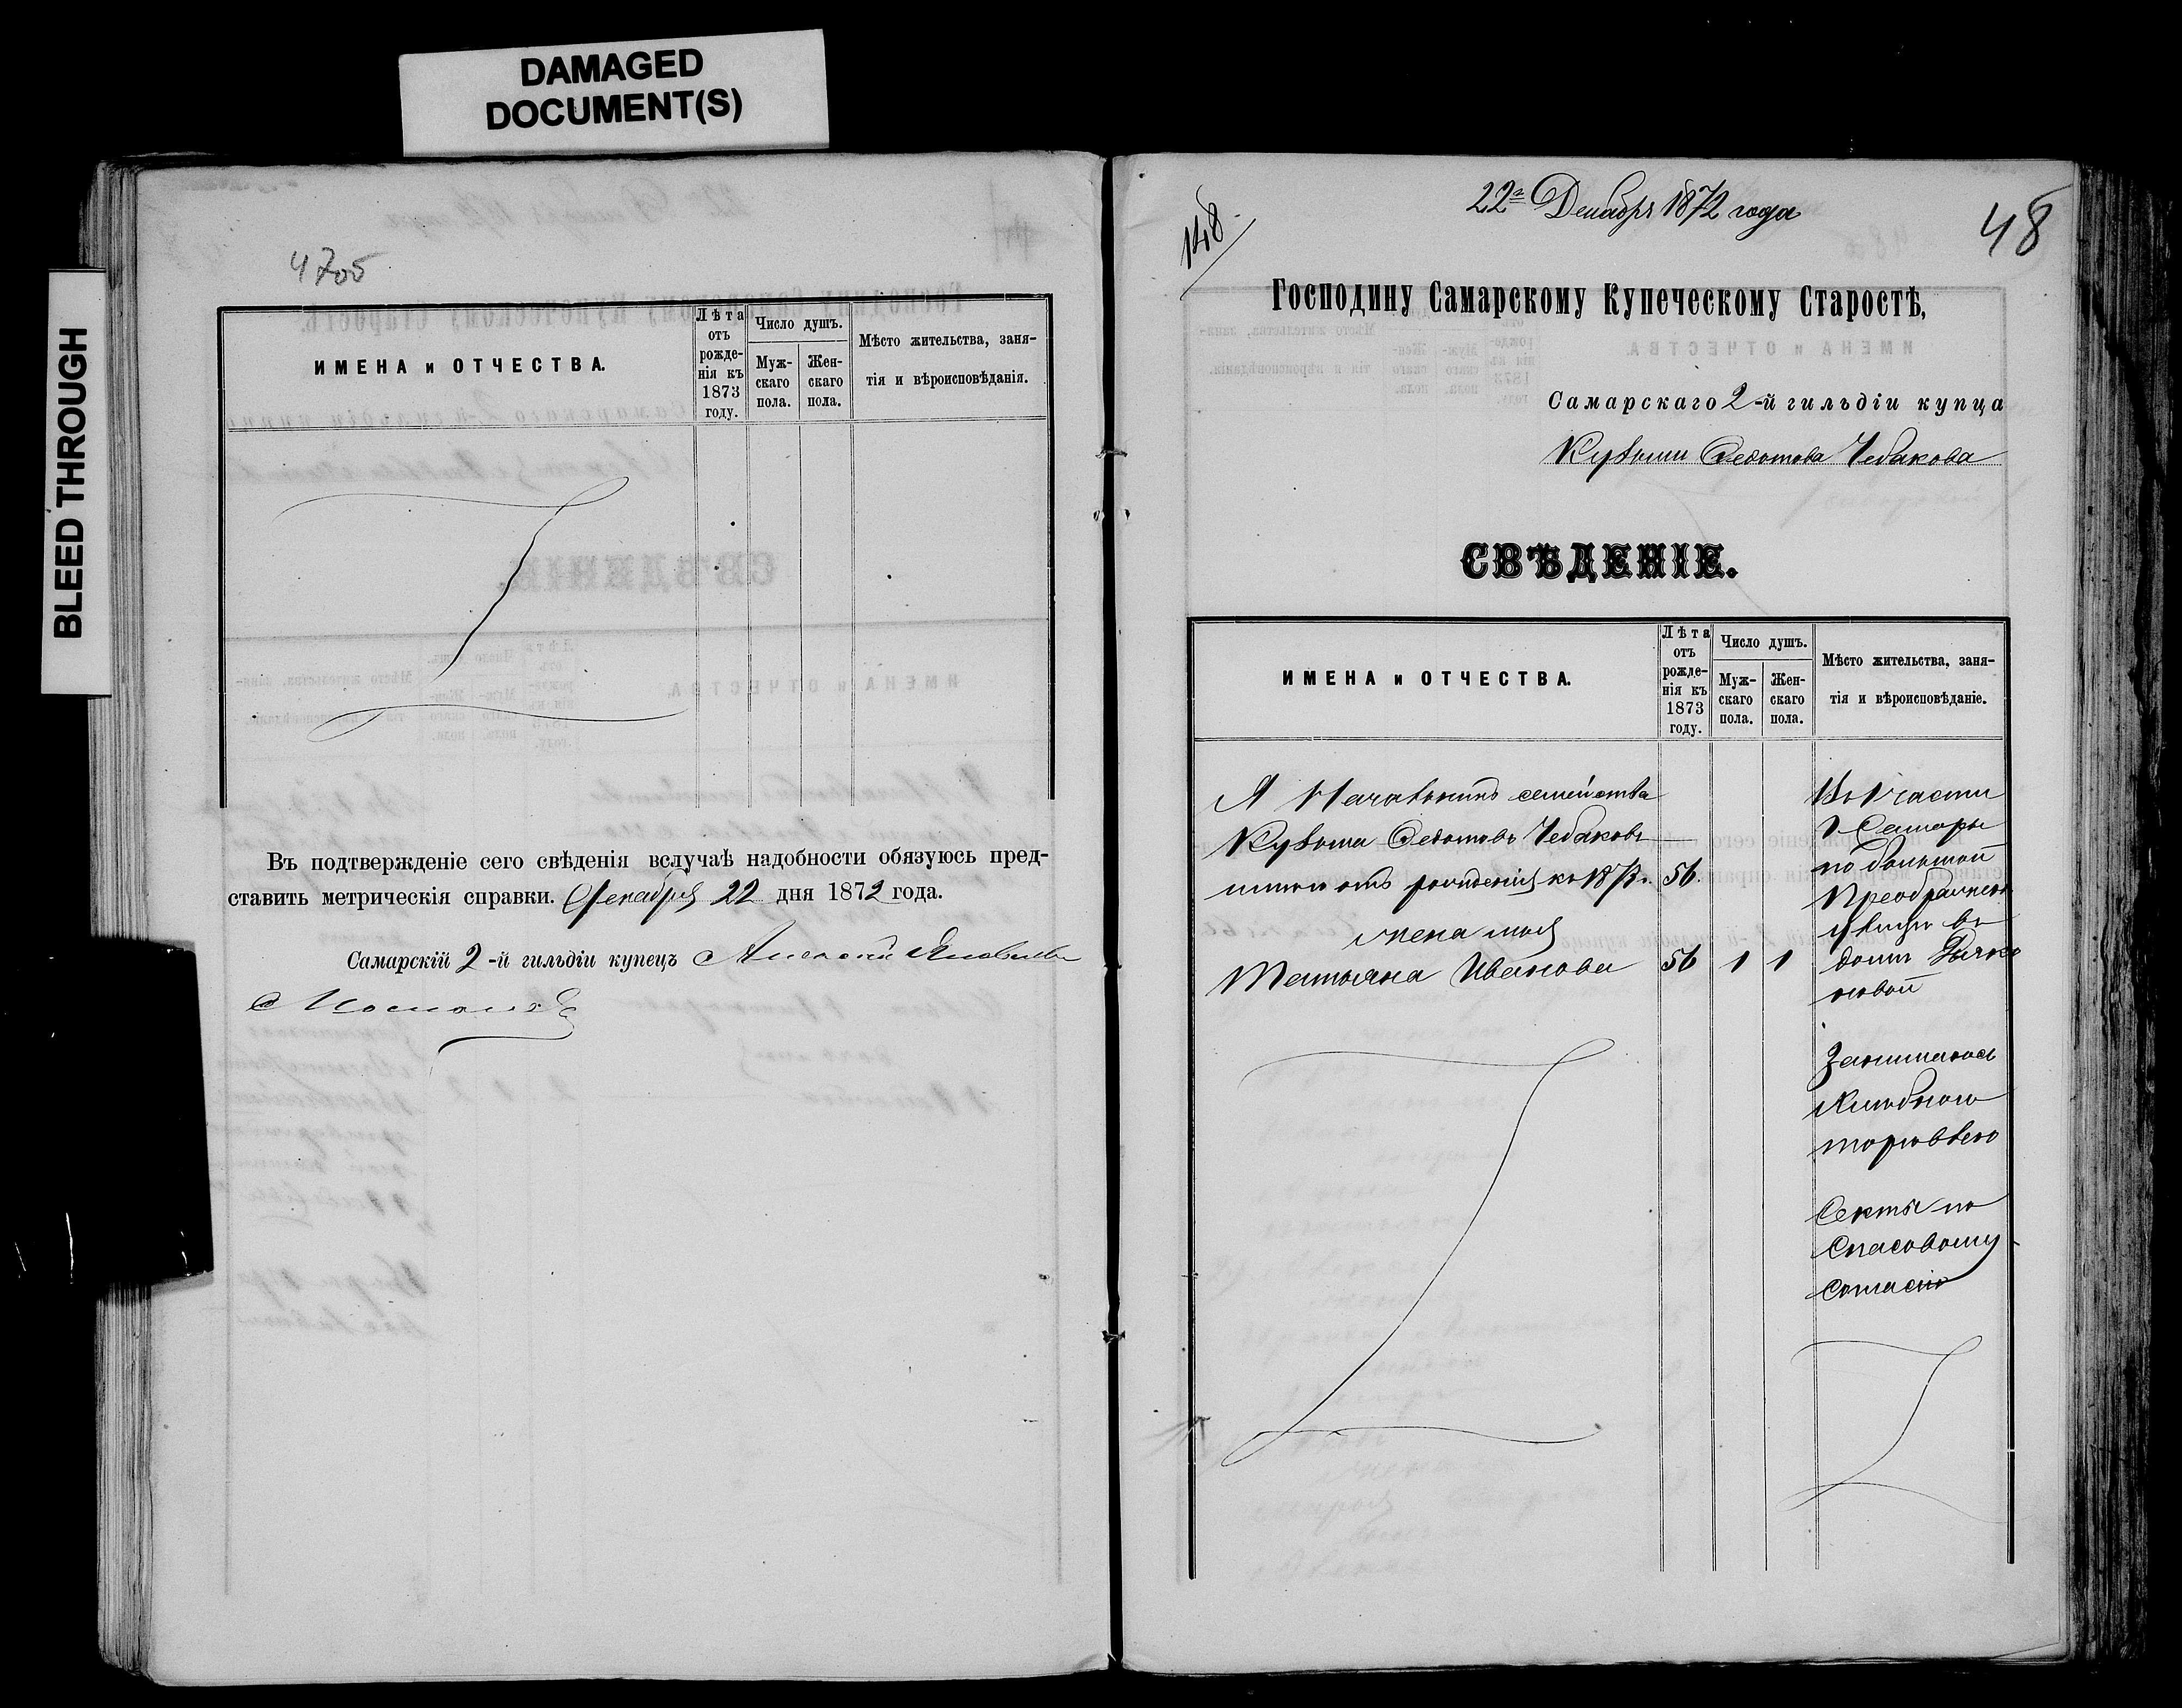 DAMAGED
DOCUMENT(S)
BLEED THROUGH
47об
ИМЕНА и ОТЧЕСТВА.
Лѣта отъ рожде-нія къ 1873 году.
Число душъ.
Муж-скаго пола.
Жен-скаго пола.
Мѣсто жительства, заня-
тія и вѣроисповѣданія.
Въ подтвержденіе сего свѣденія вслучаѣ надобности обязуюсь пред-
ставить метрическія справки. Декабря 22 дня 1872 года.
Самарскій 2-й гильдіи купецъ Алексѣй Яковлевъ
148
22го Декабря 1872 года
48
Господину Самарскому Купеческому Старостѣ,
Самарскаго 2-й гильдіи купца
Кузьмы Федотова Чебакова
СВѢДЕНІЕ.
ИМЕНА и ОТЧЕСТВА.
Лѣта отъ рожде-нія къ 1873 году.
Число душъ.
Муж-скаго пола.
Жен-скаго пола.
Мѣсто жительства, заня-
тія и вѣроисповѣданіе.
Я Начальникъ семейства
Кузьма Федотовъ Чебаковъ
отъ рожденія къ 1873 г. 56.
жена моя
Татьяна Иванова 56 1 1
Въ 1 части
г. Самары
по большой
Преображенск
улицѣ въ
домѣ
Занимаюсь
Хлѣбною
торговлею
Секты по
Спасовому
согласію